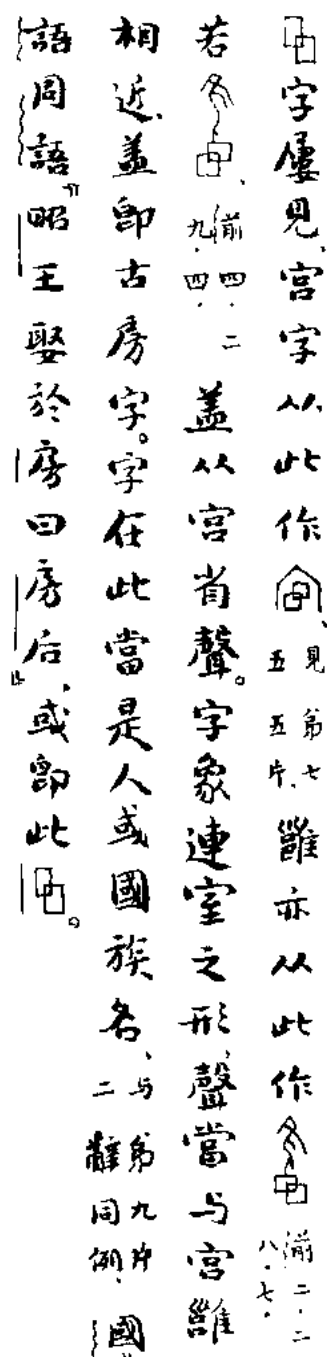 字屢見，宮字从此作、見第七五五片，雝亦从此作前二·二八·七·
若、前四·二九·四·蓋从宮省聲。字象連室之形，聲當与宮雝
相近，蓋即古房字。字在此當是人或國族名、与第九片二辭同例，國
語周語『昭王娶於房曰房后』，或即此。